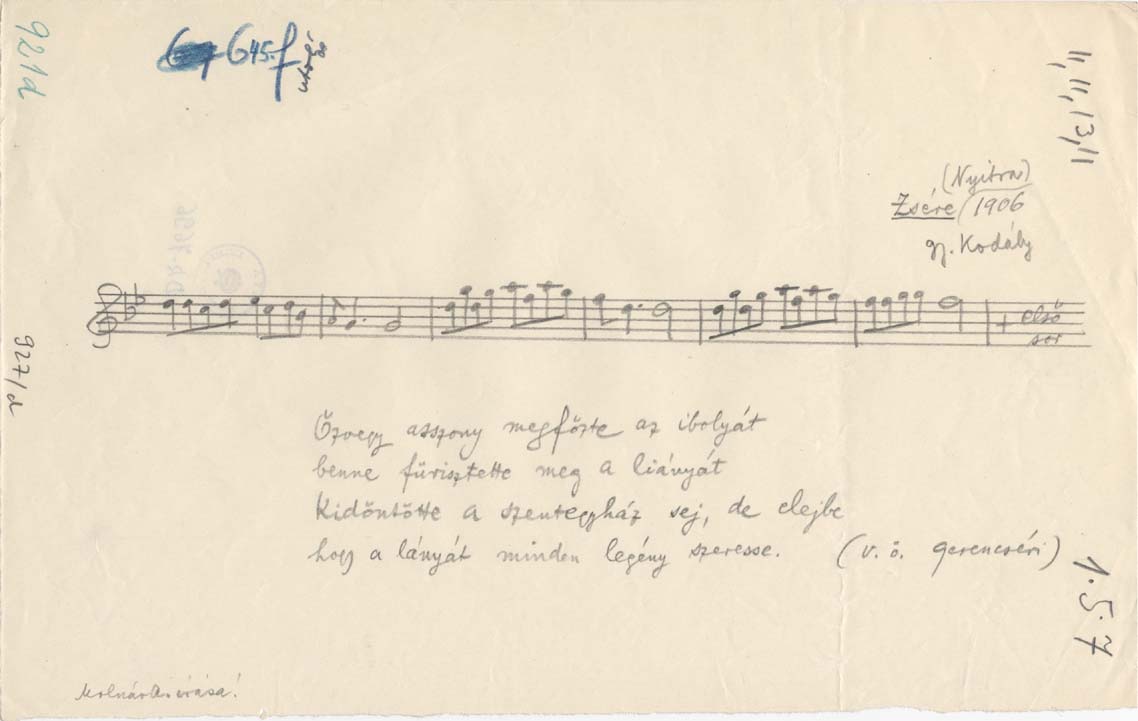 921d
645.f
utolsó
11,11,13,11
(Nyitra)
Zsére 1906
gy. Kodály
+ első
sor
927/d
Özvegy asszony megfőzte az ibolyát
benne fürisztette meg a liányát
Kidöntötte a szentegyház sej, de elejbe
hogy a lányát minden legény szeresse. (v. ö. gerencséri)
1.5.7
Molnár A. írása!